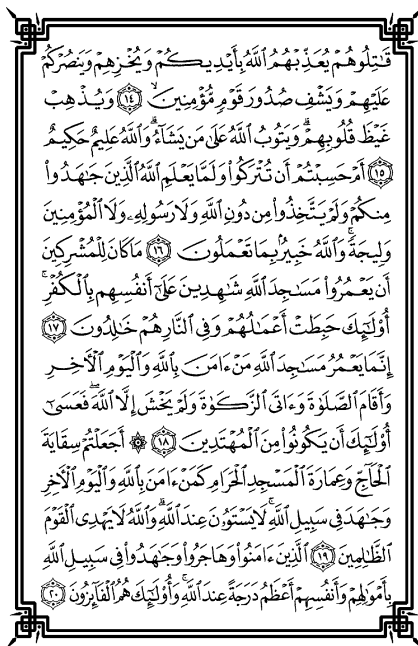 قَٰتِلُوهُمْ يُعَذِّبْهُمُ ٱللَّهُ بِأَيْدِيكُمْ وَيُخْزِهِمْ وَيَنصُرْكُمْ
عَلَيْهِمْ وَيَشْفِ صُدُورَ قَوْمٍ مُّؤْمِنِينَ ۝١٤ وَيُذْهِبْ
غَيْظَ قُلُوبِهِمْ ۗ وَيَتُوبُ ٱللَّهُ عَلَىٰ مَن يَشَآءُ ۗ وَٱللَّهُ عَلِيمٌ حَكِيمٌ
۝١٥ أَمْ حَسِبْتُمْ أَن تُتْرَكُوا۟ وَلَمَّا يَعْلَمِ ٱللَّهُ ٱلَّذِينَ جَٰهَدُوا۟
مِنكُمْ وَلَمْ يَتَّخِذُوا۟ مِن دُونِ ٱللَّهِ وَلَا رَسُولِهِۦ وَلَا ٱلْمُؤْمِنِينَ
وَلِيجَةً ۚ وَٱللَّهُ خَبِيرٌۢ بِمَا تَعْمَلُونَ ۝١٦ مَا كَانَ لِلْمُشْرِكِينَ
أَن يَعْمُرُوا۟ مَسَٰجِدَ ٱللَّهِ شَٰهِدِينَ عَلَىٰٓ أَنفُسِهِم بِٱلْكُفْرِ ۚ
أُو۟لَٰٓئِكَ حَبِطَتْ أَعْمَٰلُهُمْ وَفِى ٱلنَّارِ هُمْ خَٰلِدُونَ ۝١٧
إِنَّمَا يَعْمُرُ مَسَٰجِدَ ٱللَّهِ مَنْ ءَامَنَ بِٱللَّهِ وَٱلْيَوْمِ ٱلْءَاخِرِ
وَأَقَامَ ٱلصَّلَوٰةَ وَءَاتَى ٱلزَّكَوٰةَ وَلَمْ يَخْشَ إِلَّا ٱللَّهَ ۖ فَعَسَىٰٓ
أُو۟لَٰٓئِكَ أَن يَكُونُوا۟ مِنَ ٱلْمُهْتَدِينَ ۝١٨ ۞ أَجَعَلْتُمْ سِقَايَةَ
ٱلْحَآجِّ وَعِمَارَةَ ٱلْمَسْجِدِ ٱلْحَرَامِ كَمَنْ ءَامَنَ بِٱللَّهِ وَٱلْيَوْمِ ٱلْءَاخِرِ
وَجَٰهَدَ فِى سَبِيلِ ٱللَّهِ ۚ لَا يَسْتَوُۥنَ عِندَ ٱللَّهِ ۗ وَٱللَّهُ لَا يَهْدِى ٱلْقَوْمَ
ٱلظَّٰلِمِينَ ۝١٩ ٱلَّذِينَ ءَامَنُوا۟ وَهَاجَرُوا۟ وَجَٰهَدُوا۟ فِى سَبِيلِ ٱللَّهِ
بِأَمْوَٰلِهِمْ وَأَنفُسِهِمْ أَعْظَمُ دَرَجَةً عِندَ ٱللَّهِ ۚ وَأُو۟لَٰٓئِكَ هُمُ ٱلْفَآئِزُونَ ۝٢٠